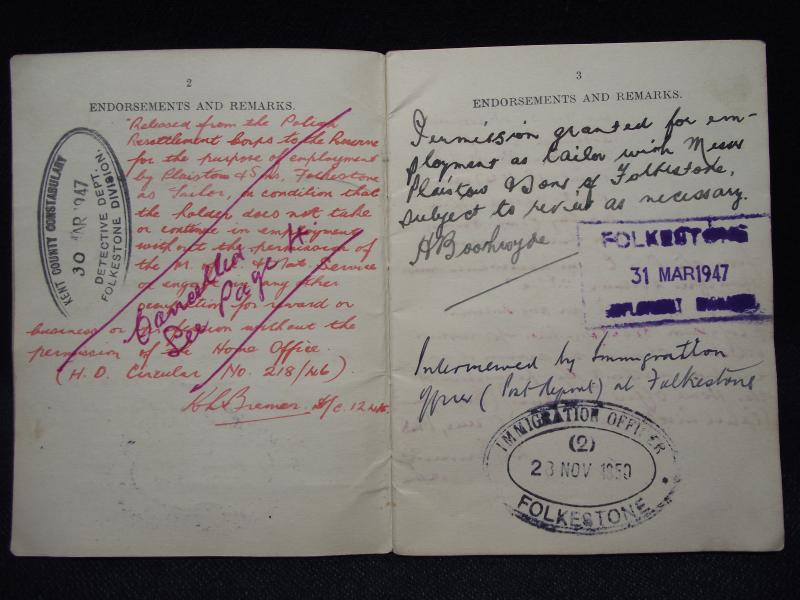 2
ENDORSEMENTS AND REMARKS.
"Released from the Polish
Resettlement Corps to the Reserve
for the purpose of employment
by Plaistow & Sons, Folkestone
as Tailor, on condition that
the holder does not take
or continue in employment
without the permission of
the M. of L. & Nat. Service
or engage in any other
occupation for reward or
business or profession without the
permission of the Home Office.
(H.O. Circular No. 218/46)
Cancelled
See page 4
KENT COUNTY CONSTABULARY
30 MAR 1947
DETECTIVE DEPT.
FOLKESTONE DIVISION.
3
ENDORSEMENTS AND REMARKS.
Permission granted for em-
ployment as tailor with Messrs
Plaistow & Sons of Folkestone,
subject to review as necessary.
FOLKESTONE
31 MAR 1947
EMPLOYMENT EXCHANGE
Interviewed by Immigration
(Port Report) at Folkestone
IMMIGRATION OFFICER
(2)
23 NOV 1950
FOLKESTONE